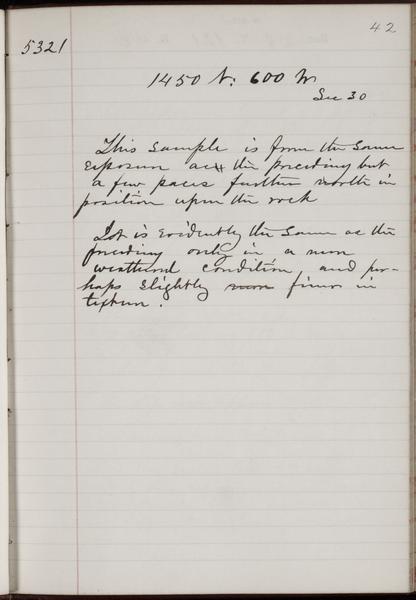 42
5321
1450 N. 600 W.
Sec 30
This sample is from the same
exposure as the preceding but
a few paces further north in
position upon the rock
It is evidently the same as the
preceding only in a more
weathered condition, and per-
haps slightly more finer in
texture.